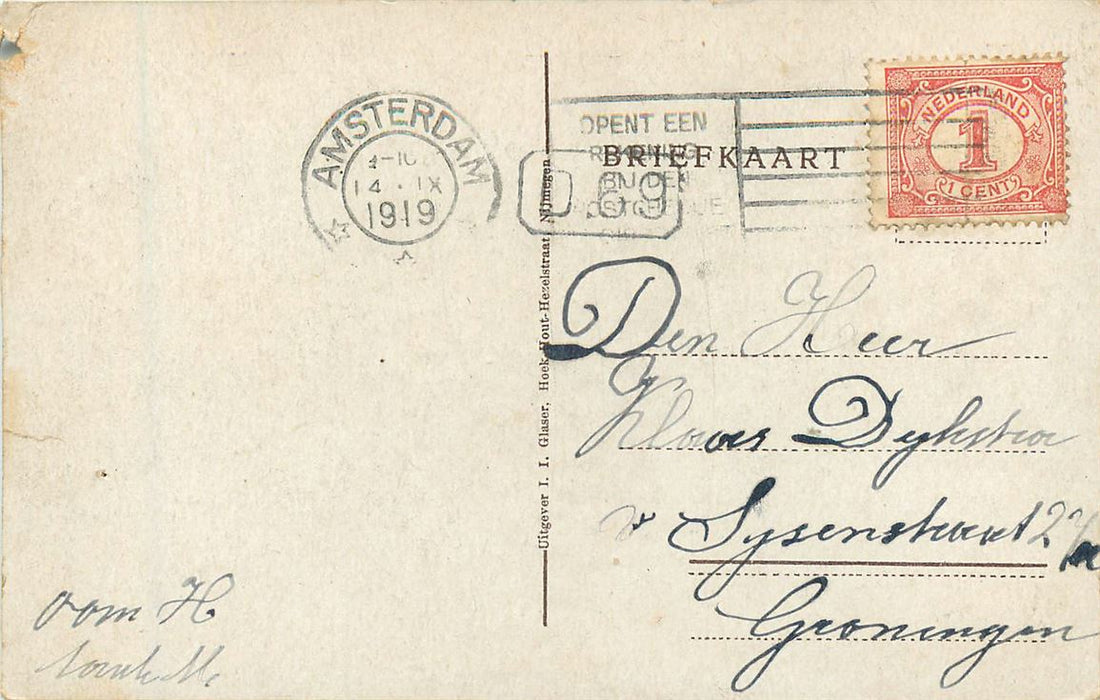 AMSTERDAM
14 · IX
1919
OPENT EEN
BIJ DEN
BRIEFKAART
D 69
NEDERLAND
1
1 CENT
Uitgever I. I. Glaser, Hoek Hout-Hezelstraat Nijmegen
Den Heer
Klaas Dykstra
Groningen
oom H